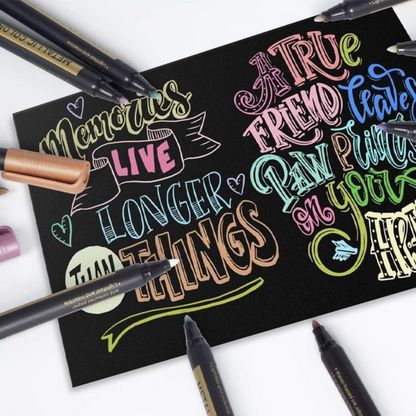 METALLIC COLOR
Memories
LIVE
LONGER
THAN
THINGS
A TRUe
FRIEND leaves
PAW PRINTS
on your